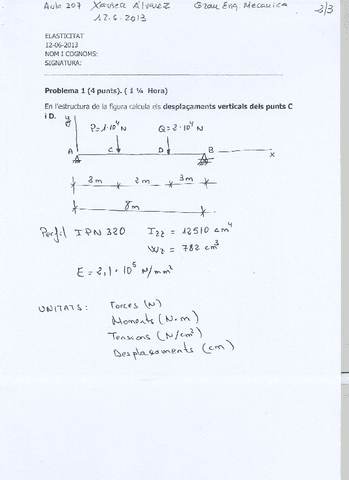 Aula 207 Xavier Álvarez Grau Eng Mecanica 3/3
12.6.2013
ELASTICITAT
12-06-2013
NOM I COGNOMS:
SIGNATURA:
Problema 1 (4 punts). ( 1 ¼ Hora)
En l'estructura de la figura calcula els desplaçaments verticals dels punts C
i D.
y
P=1·10⁴ N Q=2·10⁴ N
A C D B x
3m 2m 3m
8m
Perfil IPN 320 Izz = 12510 cm⁴
Wz = 782 cm³
E = 2,1·10⁵ N/mm²
UNITATS: Forces (N)
Moments (N·m)
Tensions (N/cm²)
Desplaçaments (cm)